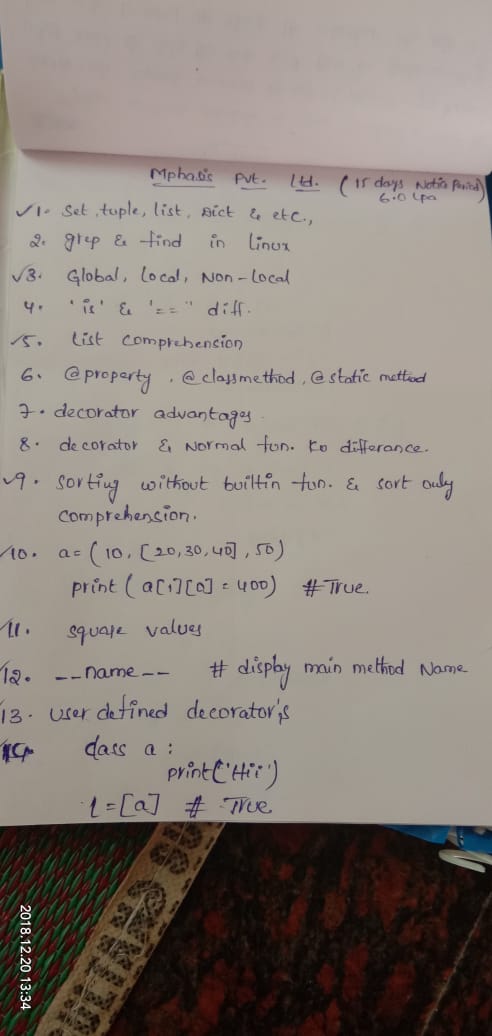 Mphasis Pvt. Ltd. (15 days Notice Period)
6.0 Lpa
✓1. Set, tuple, list, Dict & etc.,
2. grep & find in linux
✓3. Global, Local, Non-Local
4. 'is' & '==" diff.
✓5. List comprehension
6. @property, @classmethod, @static method
7. decorator advantages.
8. decorator & Normal fun. ko differance.
✓9. Sorting without builtin fun. & sort only
comprehension.
✓10. a= (10, [20,30,40], 50)
print (a[1][0] = 400) # True.
✓11. square values
✓12. --name-- # display main method Name
13. user defined decorator's
class a :
print('Hii')
l=[a] # True
2018.12.20 13:34